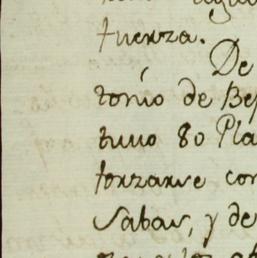 fuerza.
De
tonio de Be
tuvo 80 Pla
forzarse con
Sabas, y de